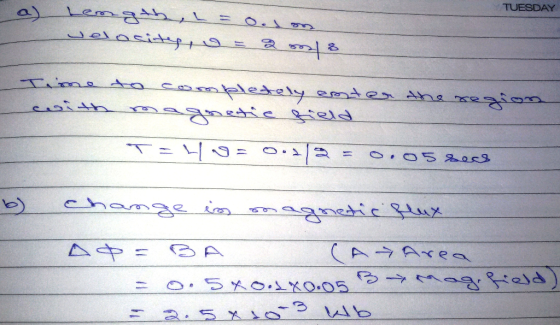 TUESDAY
a) Length, L = 0.1 m
velocity, v = 2 m/s
Time to completely enter the region
with magnetic field
T = L/v = 0.1/2 = 0.05 secs
b) change in magnetic flux
ΔΦ = BA (A → Area
= 0.5 × 0.1 × 0.05 B → mag. field)
= 2.5 × 10⁻³ Wb